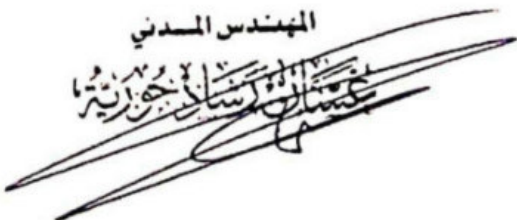 المهندس المدني
غسان رشاد جورية